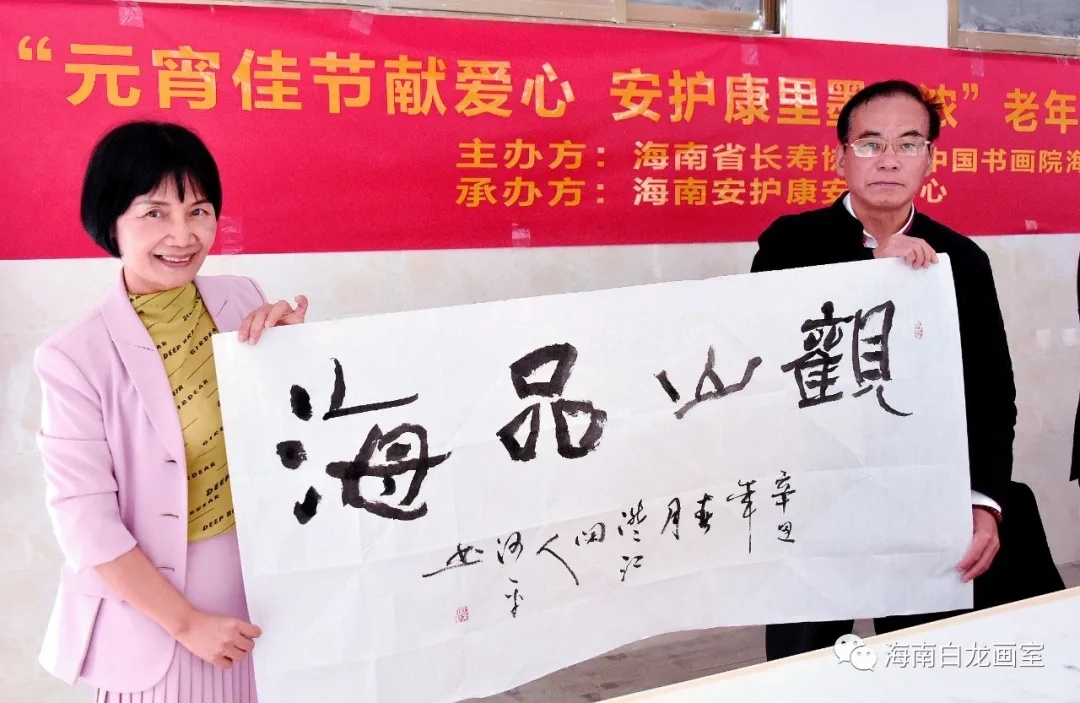 “元宵佳节献爱心 安护康里墨浓” 老年
主办方：海南省长寿协 中国书画院海
承办方：海南安护康安 心
觀山品海
辛丑年春月
人
书
DEEP
GIRDEAR
海南白龙画室